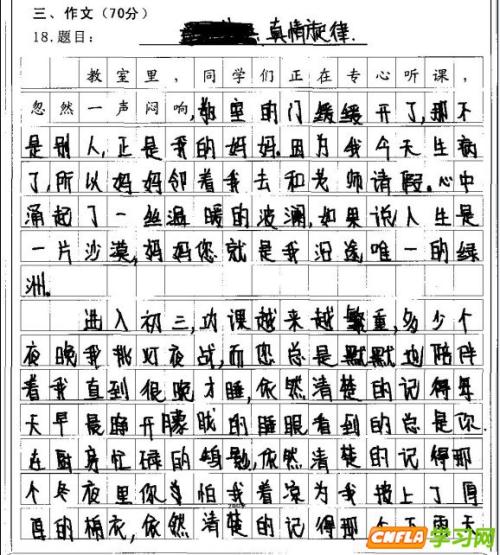 三、作文(70分)
18.题目: 真情旋律.
教室里,同学们正在专心听课,
忽然一声闷响,教室的门缓缓开了,那不
是别人,正是我的妈妈.因为我今天生病
了,所以妈妈带着我去和老师请假.心中
涌起了一丝温暖的波澜,如果说人生是
一片沙漠,妈妈您就是我沿途唯一的绿
洲.
进入初三,功课越来越繁重,多少个
夜晚我挑灯夜战,而您总是默默地陪伴
着我直到很晚才睡,依然清楚的记得每
天早晨睁开朦胧的睡眼看到的总是你
在厨房忙碌的身影,依然清楚的记得那
个冬夜里你害怕我着凉为我披上了厚
厚的棉衣,依然清楚的记得那个下雨天
CNFLA学习网